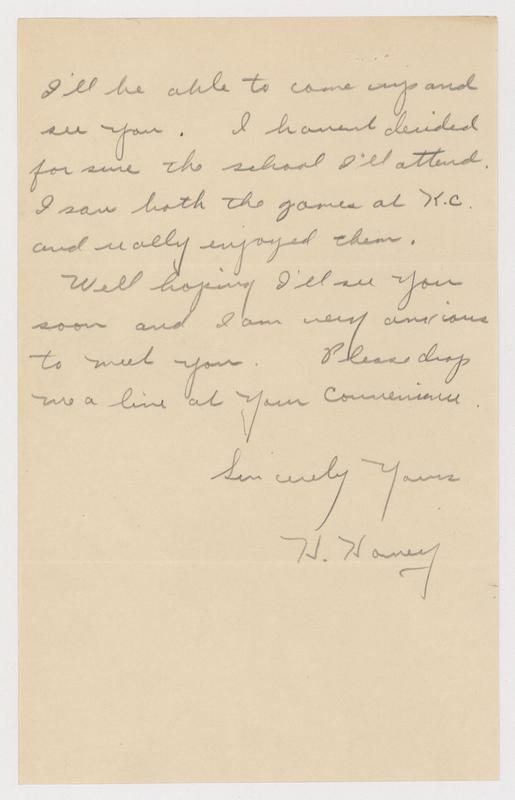 I'll be able to come up and
see you. I havent decided
for sure the school I'll attend.
I saw both the games at K.C.
and really enjoyed them.
Well hoping I'll see you
soon and I am very anxious
to meet you. Please drop
me a line at your convenience.
Sincerely Yours
H.